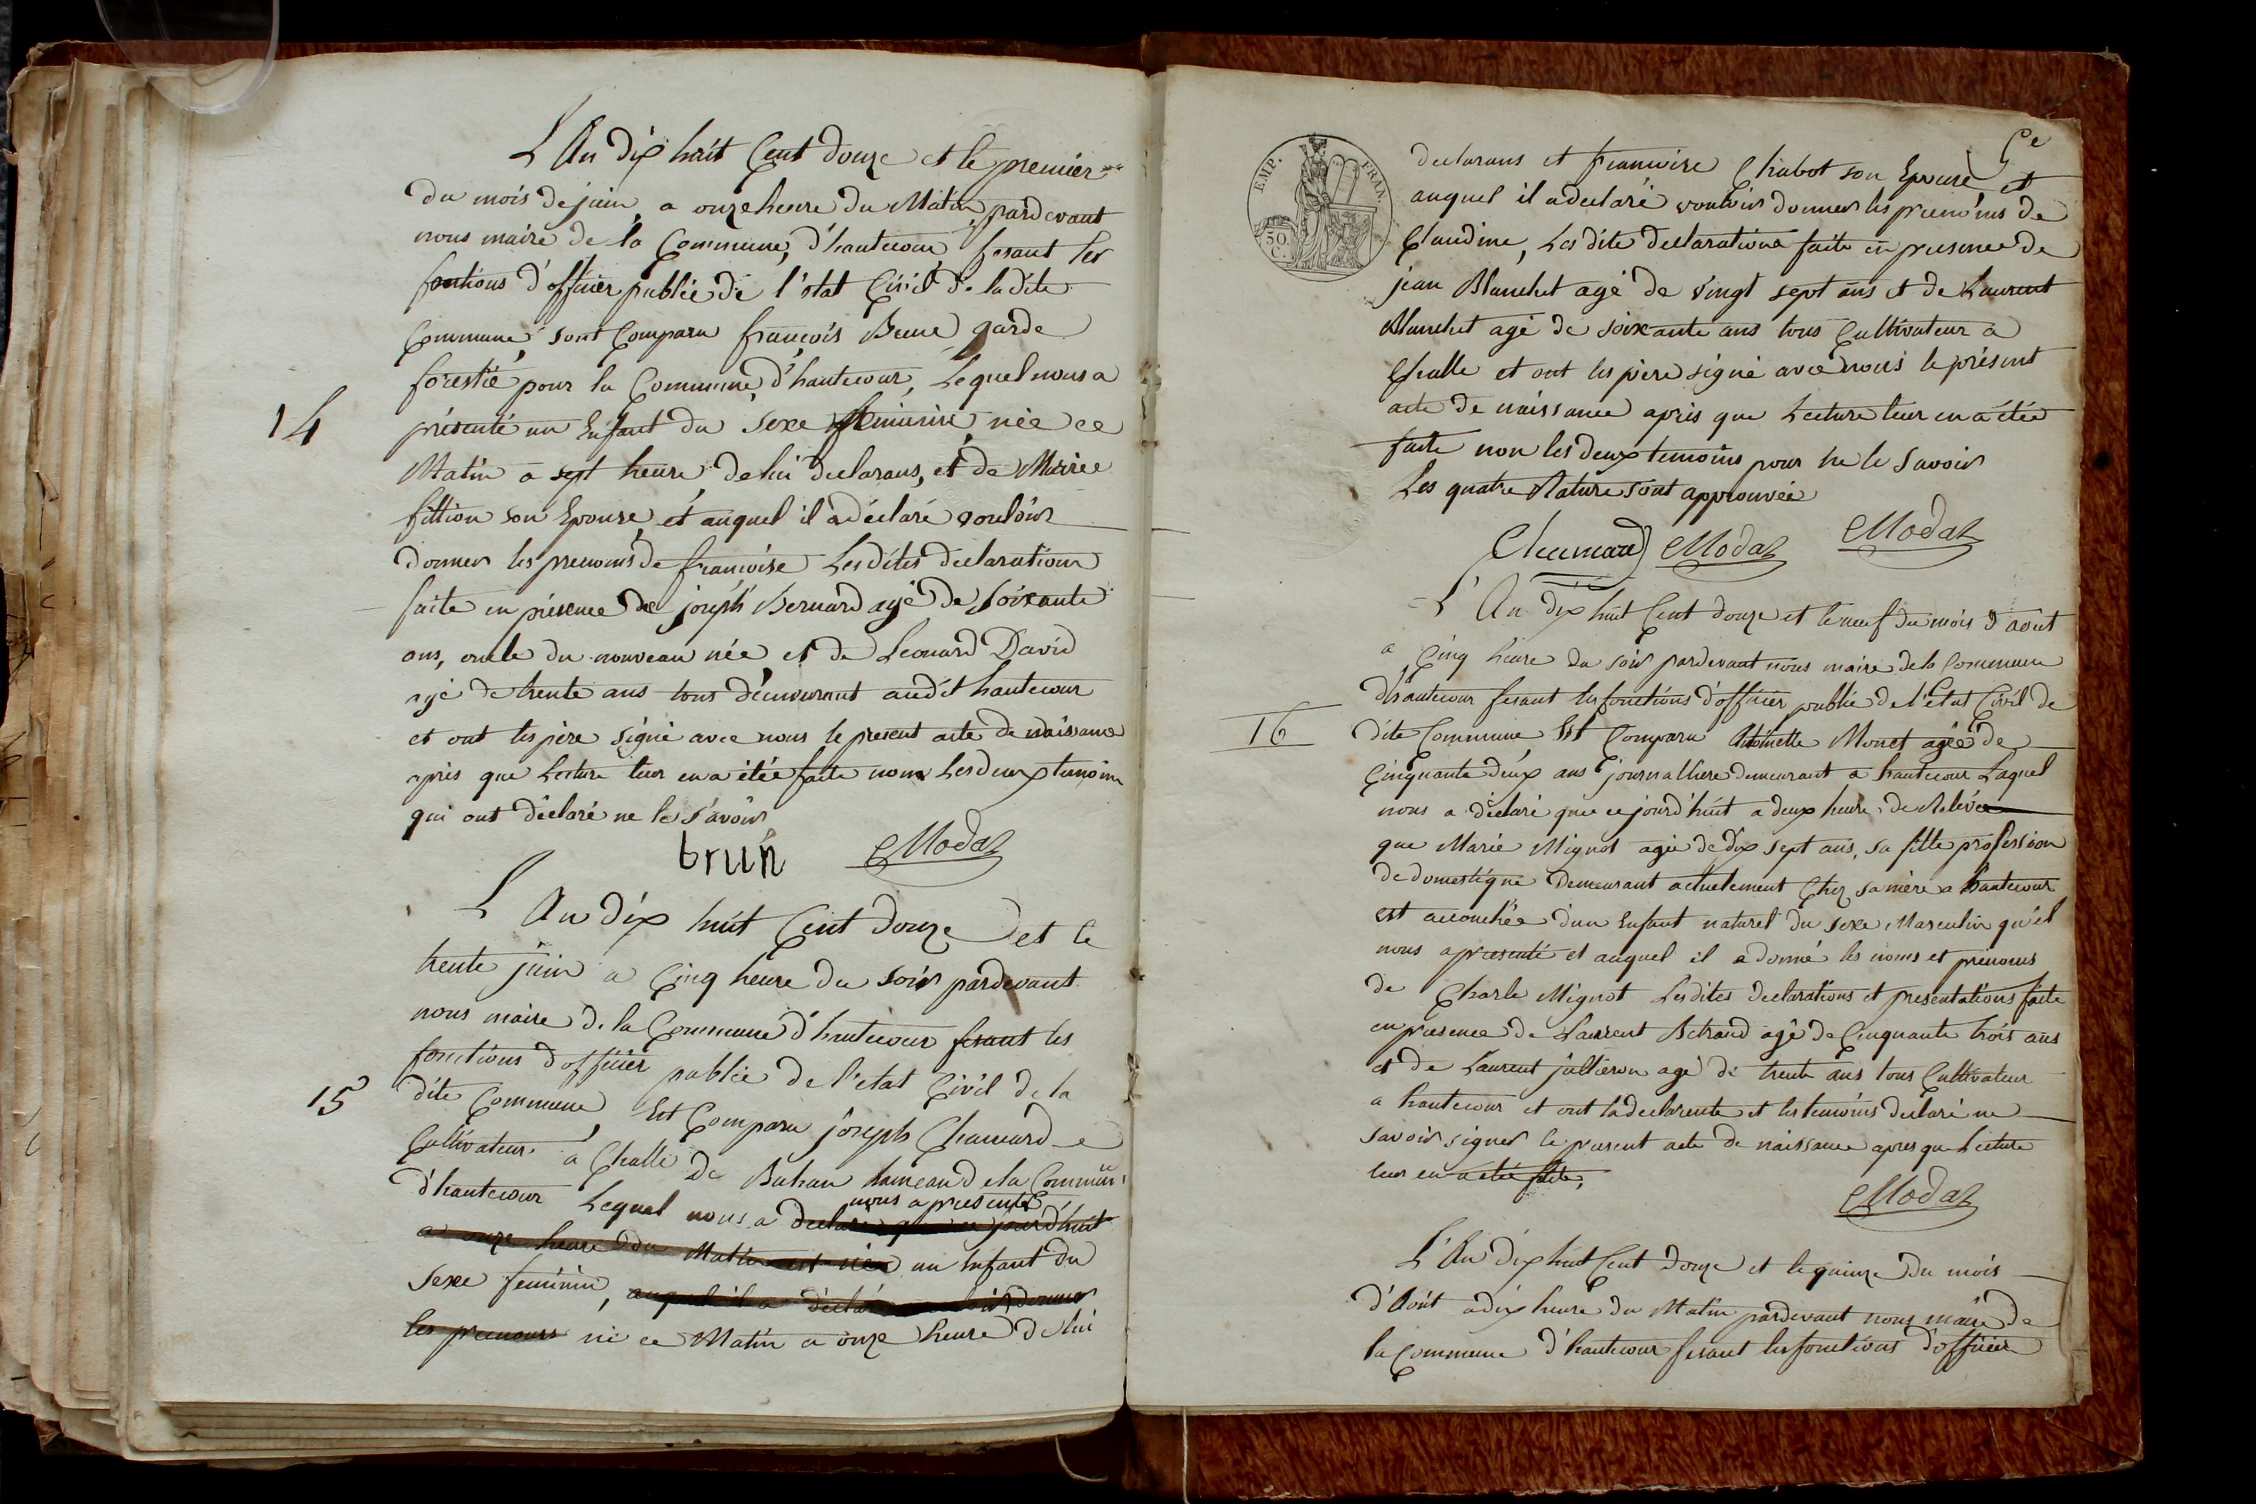 L'An dix huit Cent douze et le premier
du mois de juin a onze heure du Matin, pardevant
nous maire de la Commune, d'hautecour fesant les
fontions d'officier publie de l'etat Civil de ladite
Commune, sont Comparu françois Brun garde
forestié pour la Commune, d'hautecour, Lequel nous a
14
présenté un Enfant du Sexe feminine, née ce
Matin a sept heure, de lui declarans, et de Marie
fillion son Epouse, et auquel il a déclaré vouloir
donner les prenoms de francoise Lesdites declaration
faite en présence de joseph Bernard agé de Soixante
ans, oncle du nouveau née, et de Leonard David
agé de trente ans tous demeurant audit hautecour
et ont les père signé avec nous le present acte de naissance
après que Lecture leur en a étée faite non Les deux temoins
qui ont déclaré ne le savoir
brun Modaz
L'An dix huit Cent douze et le
trente juin a Cinq heure du soir pardevant
nous maire de la Commune d'hautecour fesant les
fonctions d'officier publie de l'etat Civil de la
15
dite Commune, Est Comparu joseph Chanard
Cultivateur a Challe De Bohan hameau de la Commune
d'hautecour Lequel nous a declaré que ce jourd'huit
nous a presenté
a onze heure du Matin est née un Enfant du
Sexe feminin, auquel il a déclaré vouloir donner
les prenoms né ce Matin a onze heure de lui
5e
EMP. FRAN.
50 C.
declarans et francoise Chabot son Epouse, et
auquel il a declaré vouloir donner les prenoms de
Claudine, Les dite declarations faite en presence de
jean Blanchet agé de vingt sept ans et de Laurent
Blanchet agé de soixante ans tous Cultivateur a
Challe et ont les père signé avec nous le présent
acte de naissance après que Lecture leur en a étée
faite non les deux temoins pour ne le Savoir
Les quatre Rature sont approuvée
Chanard Modaz Modaz
L'An dix huit Cent douze et le neuf du mois d'aout
a Cinq heure du soir pardevant nous maire de la Commune
d'hautecour fesant les fonctions d'officier publie de l'etat Civil de
16
dite Commune Est Comparu Monet agée de
Cinquante deux ans journalliere demeurant a hautecour Laquel
nous a déclaré que ce jourd'huit a deux heure de Relévée
que Marie Mignot agée de dix sept ans, sa fille profession
de domestique Demeurant actuelement Chez sa mère a hautecour
est accouchée d'un Enfant naturel du sexe Masculin qu'il
nous a presenté et auquel il a donné les noms et prenoms
de Charle Mignot Lesdites declarations et presentations faite
en presence de Laurent Betraud agé de Cinquante trois ans
et de Laurent jullieron agé de trente ans tous Cultivateur
a hautecour et ont la declarente et les temoins declaré ne
savoir signer le present acte de naissance apres que Lecture
leur en a été faite,
Modaz
L'An dix huit Cent douze et le quinze du mois
d'Aout a dix heure du Matin pardevant nous maire de
la Commune d'hautecour fesant les fonctions d'officier